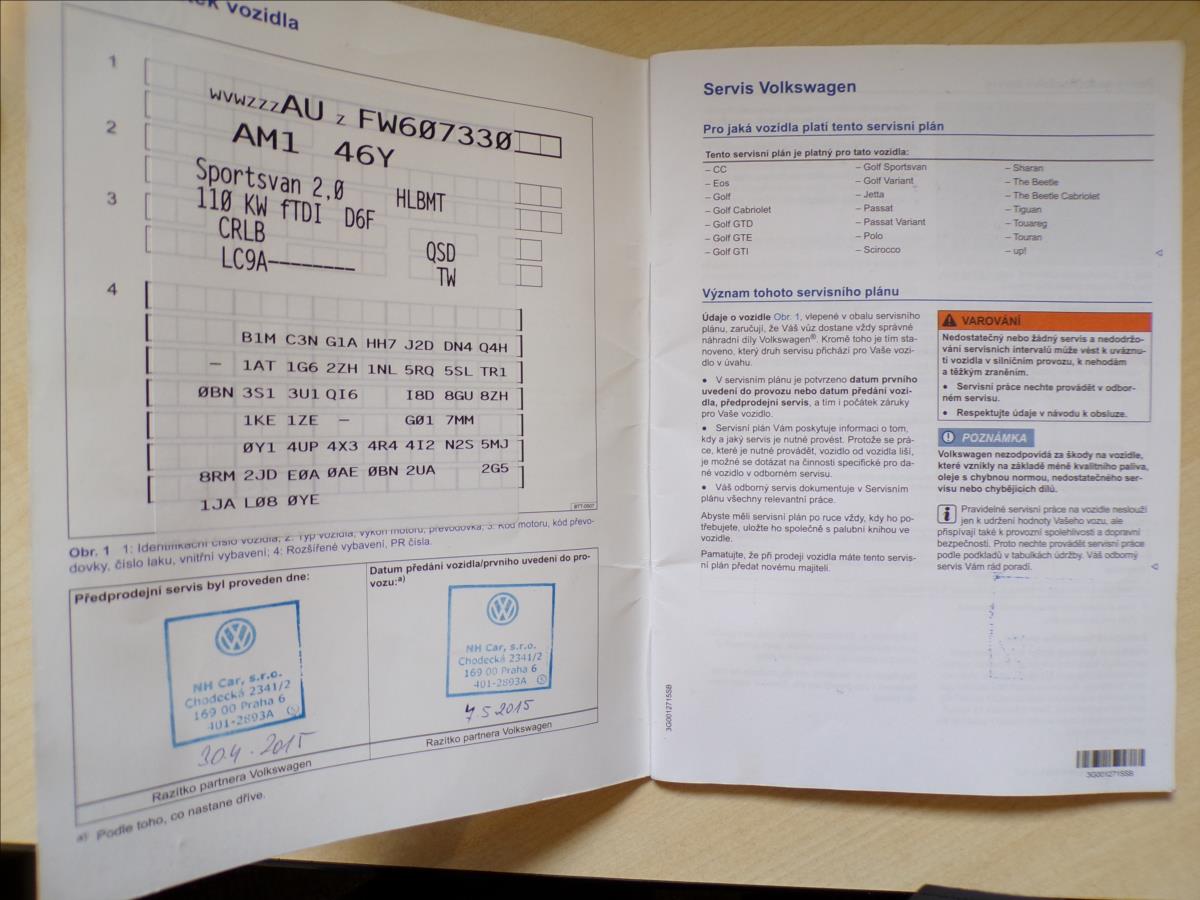 vozidla
1
WVWZZZAU Z FW607330
2
AM1 46Y
Sportsvan 2,0 HLBMT
3
110 KW fTDI D6F
CRLB QSD
LC9A-------- TW
4
B1M C3N G1A HH7 J2D DN4 Q4H
– 1AT 1G6 2ZH 1NL 5RQ 5SL TR1
0BN 3S1 3U1 QI6 I8D 8GU 8ZH
1KE 1ZE – G01 7MM
0Y1 4UP 4X3 4R4 4I2 N2S 5MJ
8RM 2JD E0A 0AE 0BN 2UA 2G5
1JA L08 0YE
BTT-0507
Obr. 1 1: Identifikační číslo vozidla; 2: Typ vozidla, výkon motoru, převodovka; 3: Kód motoru, kód převo-
dovky, číslo laku, vnitřní vybavení; 4: Rozšířené vybavení, PR čísla.
Předprodejní servis byl proveden dne:
NH Car, s.r.o.
Chodecká 2341/2
169 00 Praha 6
401-2893A
30.4.2015
Razítko partnera Volkswagen
Datum předání vozidla/prvního uvedení do pro-
vozu:a)
NH Car, s.r.o.
Chodecká 2341/2
169 00 Praha 6
401-2893A
7.5 2015
Razítko partnera Volkswagen
a) Podle toho, co nastane dříve.
Servis Volkswagen
Pro jaká vozidla platí tento servisní plán
Tento servisní plán je platný pro tato vozidla:
– CC
– Eos
– Golf
– Golf Cabriolet
– Golf GTD
– Golf GTE
– Golf GTI
– Golf Sportsvan
– Golf Variant
– Jetta
– Passat
– Passat Variant
– Polo
– Scirocco
– Sharan
– The Beetle
– The Beetle Cabriolet
– Tiguan
– Touareg
– Touran
– up!
Význam tohoto servisního plánu
Údaje o vozidle Obr. 1, vlepené v obalu servisního
plánu, zaručují, že Váš vůz dostane vždy správné
náhradní díly Volkswagen®. Kromě toho je tím sta-
noveno, který druh servisu přichází pro Vaše vozi-
dlo v úvahu.
• V servisním plánu je potvrzeno datum prvního
uvedení do provozu nebo datum předání vozi-
dla, předprodejní servis, a tím i počátek záruky
pro Vaše vozidlo.
• Servisní plán Vám poskytuje informaci o tom,
kdy a jaký servis je nutné provést. Protože se prá-
ce, které je nutné provádět, vozidlo od vozidla liší,
je možné se dotázat na činnosti specifické pro da-
né vozidlo v odborném servisu.
• Váš odborný servis dokumentuje v Servisním
plánu všechny relevantní práce.
Abyste měli servisní plán po ruce vždy, kdy ho po-
třebujete, uložte ho společně s palubní knihou ve
vozidle.
Pamatujte, že při prodeji vozidla máte tento servis-
ní plán předat novému majiteli.
VAROVÁNÍ
Nedostatečný nebo žádný servis a nedodržo-
vání servisních intervalů může vést k uváznu-
tí vozidla v silničním provozu, k nehodám
a těžkým zraněním.
• Servisní práce nechte provádět v odbor-
ném servisu.
• Respektujte údaje v návodu k obsluze.
POZNÁMKA
Volkswagen nezodpovídá za škody na vozidle,
které vznikly na základě méně kvalitního paliva,
oleje s chybnou normou, nedostatečného ser-
visu nebo chybějících dílů.
Pravidelné servisní práce na vozidle neslouží
jen k udržení hodnoty Vašeho vozu, ale
přispívají také k provozní spolehlivosti a dopravní
bezpečnosti. Proto nechte provádět servisní práce
podle podkladů v tabulkách údržby. Váš odborný
servis Vám rád poradí.
3G0012715SB
3G0012715SB